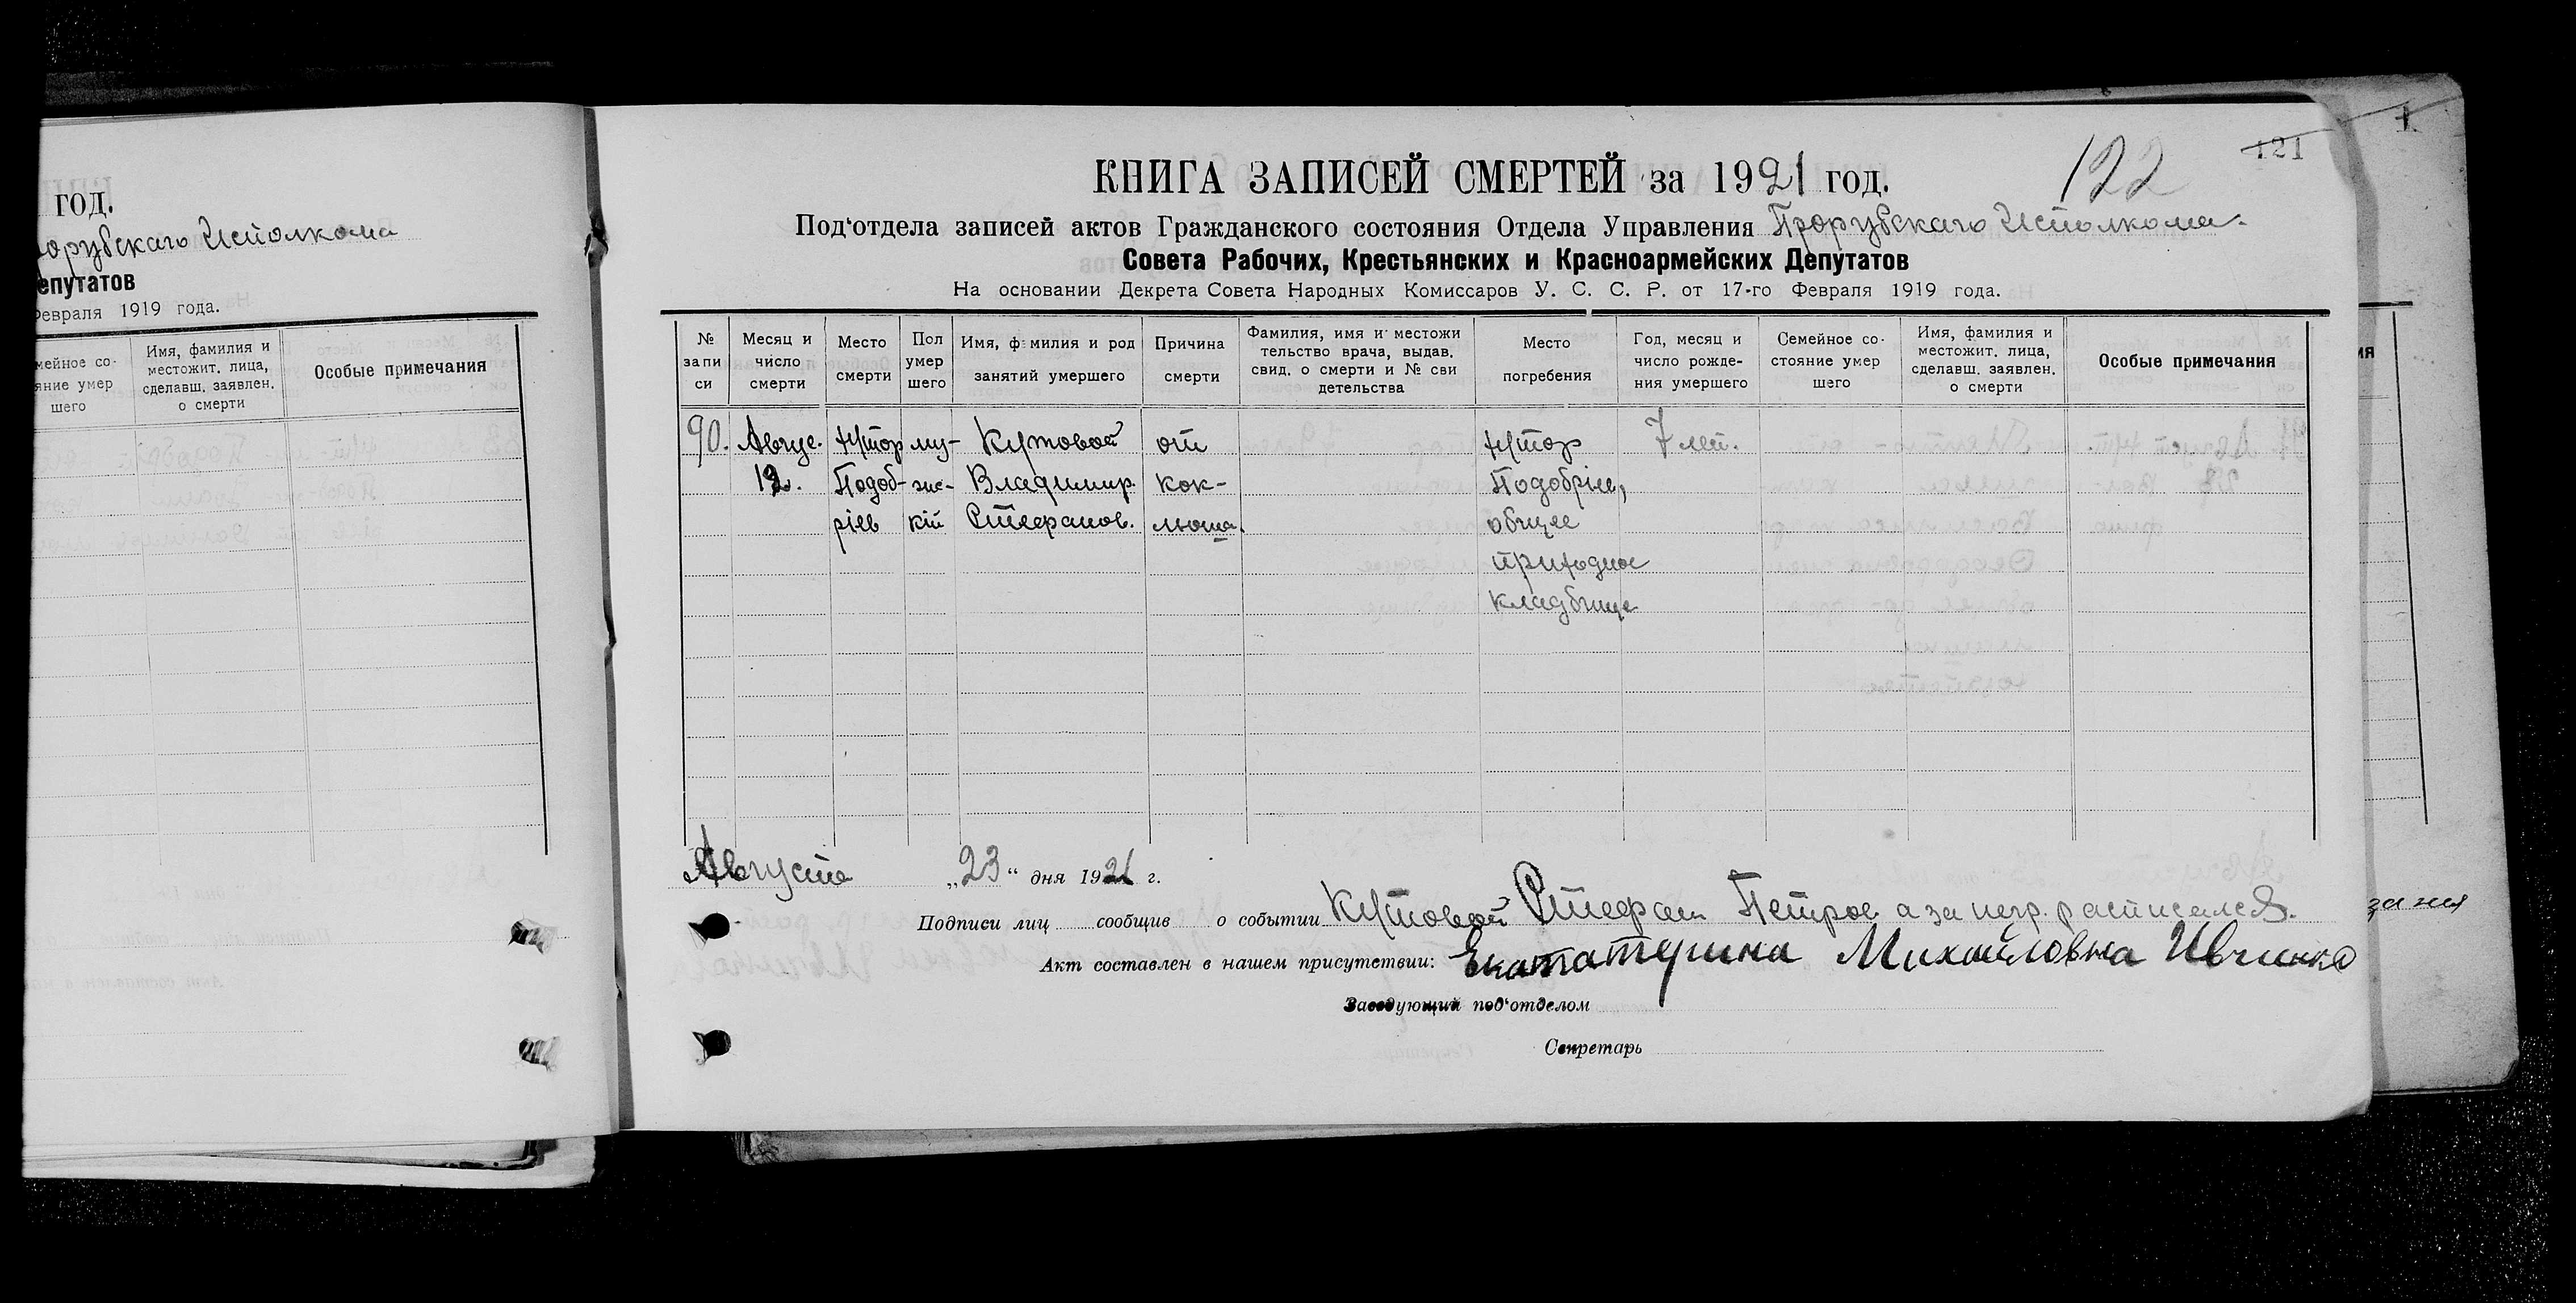 год.
Исполкома
епутатов
Февраля 1919 года.
мейное со-
яние умер
шего
Имя, фамилия и
местожит. лица,
сделавш. заявлен.
о смерти
Особые примечания
1
121
122
КНИГА ЗАПИСЕЙ СМЕРТЕЙ за 1921 год.
Под'отдела записей актов Гражданского состояния Отдела Управления Прорубскаго Исполкома.
Совета Рабочих, Крестьянских и Красноармейских Депутатов
На основании Декрета Совета Народных Комиссаров У. С. С. Р. от 17-го Февраля 1919 года.
№
запи
си
Месяц и
число
смерти
Место
смерти
Пол
умер
шего
Имя, фамилия и род
занятий умершего
Причина
смерти
Фамилия, имя и местожи
тельство врача, выдав.
свид. о смерти и № сви
детельства
Место
погребения
Год, месяц и
число рожде-
ния умершего
Семейное со-
стояние умер
шего
Имя, фамилия и
местожит. лица,
сделавш. заявлен.
о смерти
Особые примечания
90.
Авгус.
12.
Хутор
Подоб-
ріев
му-
жс-
кій
Кутовой
Владимир.
Стефанов.
от
кок-
люша.
Хутор
Подобріев,
общее
приходное
кладбище
7 лет.
Августа „23“ дня 1921 г.
Подписи лиц сообщив о событии Кутовой Стефан Петров а за негр. расписалсЯ.
Акт составлен в нашем присутствии: Екататерина Михайловна Ивченко
Заведующий под'отделом
Секретарь